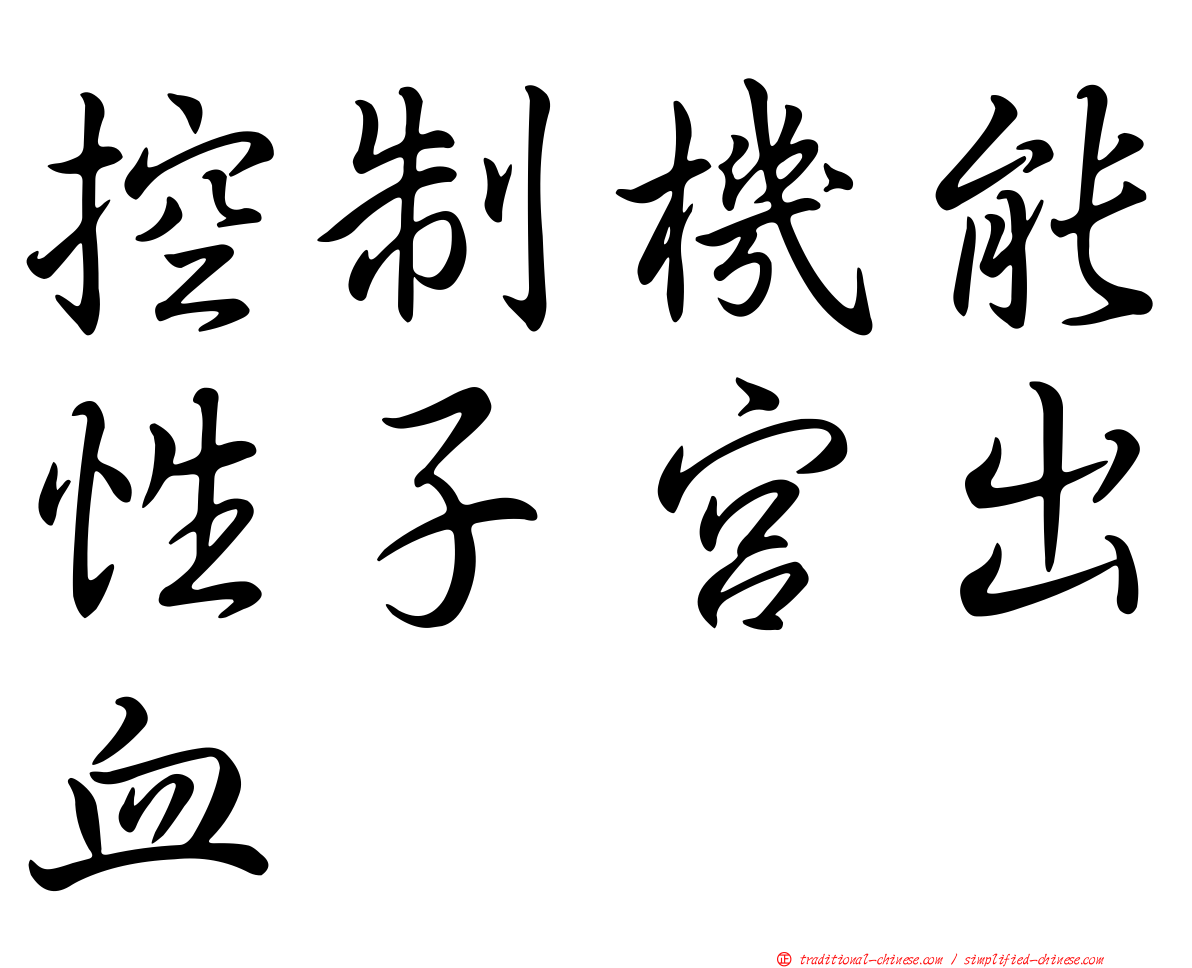 控制機能
性子宮出
血
正 traditional-chinese.com / simplified-chinese.com